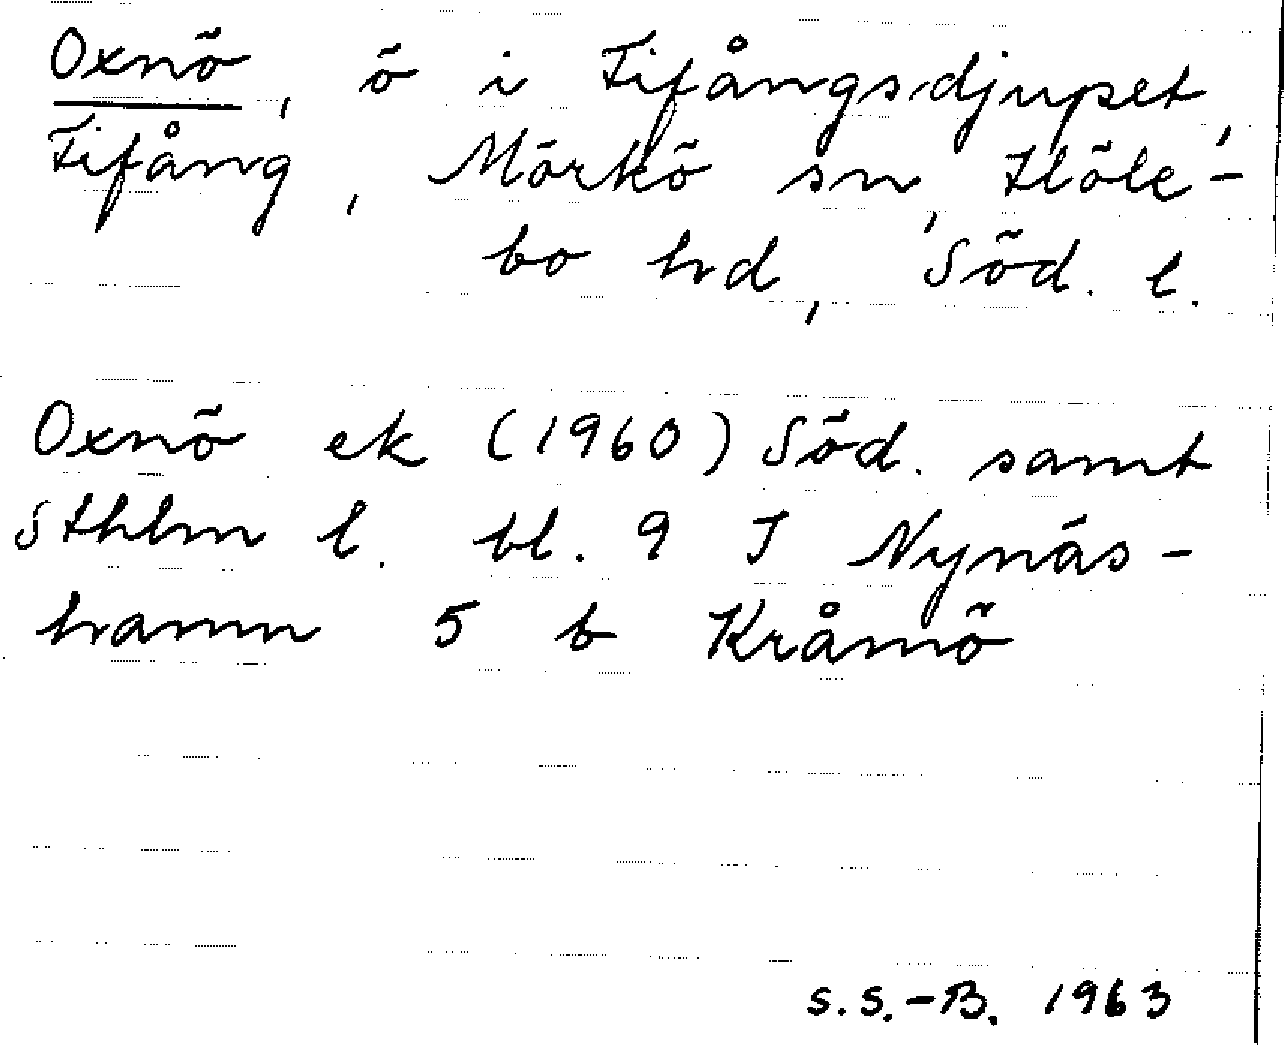 Oxnö, ö i Fifångsdjupet,
Fifång, Mörkö sn, Höle-
bo hd, Söd. l.
Oxnö ek (1960) Söd. samt
Sthlm l. bl. 9 I Nynäs-
hamn 5 b Kråmö
S.S.-B. 1963